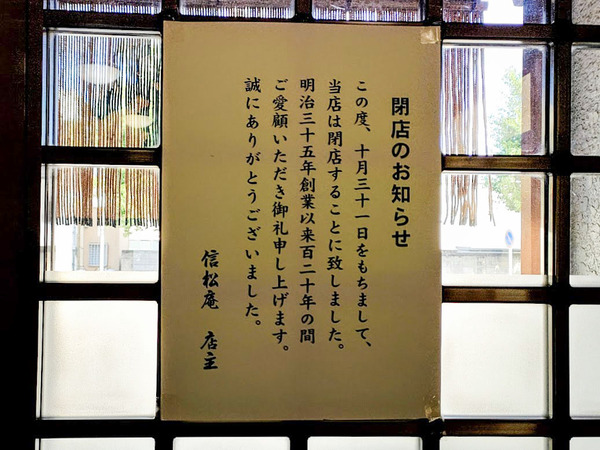 閉店のお知らせ
この度、十月三十一日をもちまして、
当店は閉店することに致しました。
明治三十五年創業以来百二十年の間
ご愛顧いただき御礼申し上げます。
誠にありがとうございました。
信松庵 店主